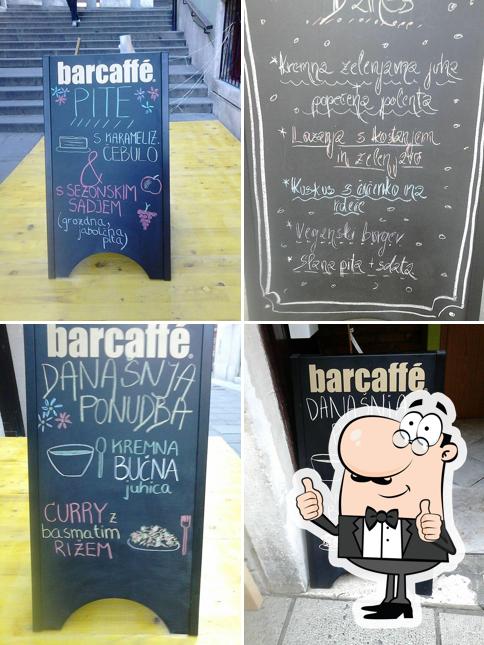 barcaffé®
PITE
S KARAMELIZ.
ČEBULO
&
S SEZONSKIM
SADJEM
(grozdna,
jabolčna
pita)
Danes
*Kremna zelenjavna juha
popečena polenta
*Lazanja s kostanjem
in zelenjavo
*Kuskus s čičerko na
rdeče
*Veganski burger
*Slana pita + solata
barcaffé®
DANAŠNJA
PONUDBA
KREMNA
BUČNA
juhica
CURRY z
basmatim
RIŽEM
barcaffé
DANAŠNJA